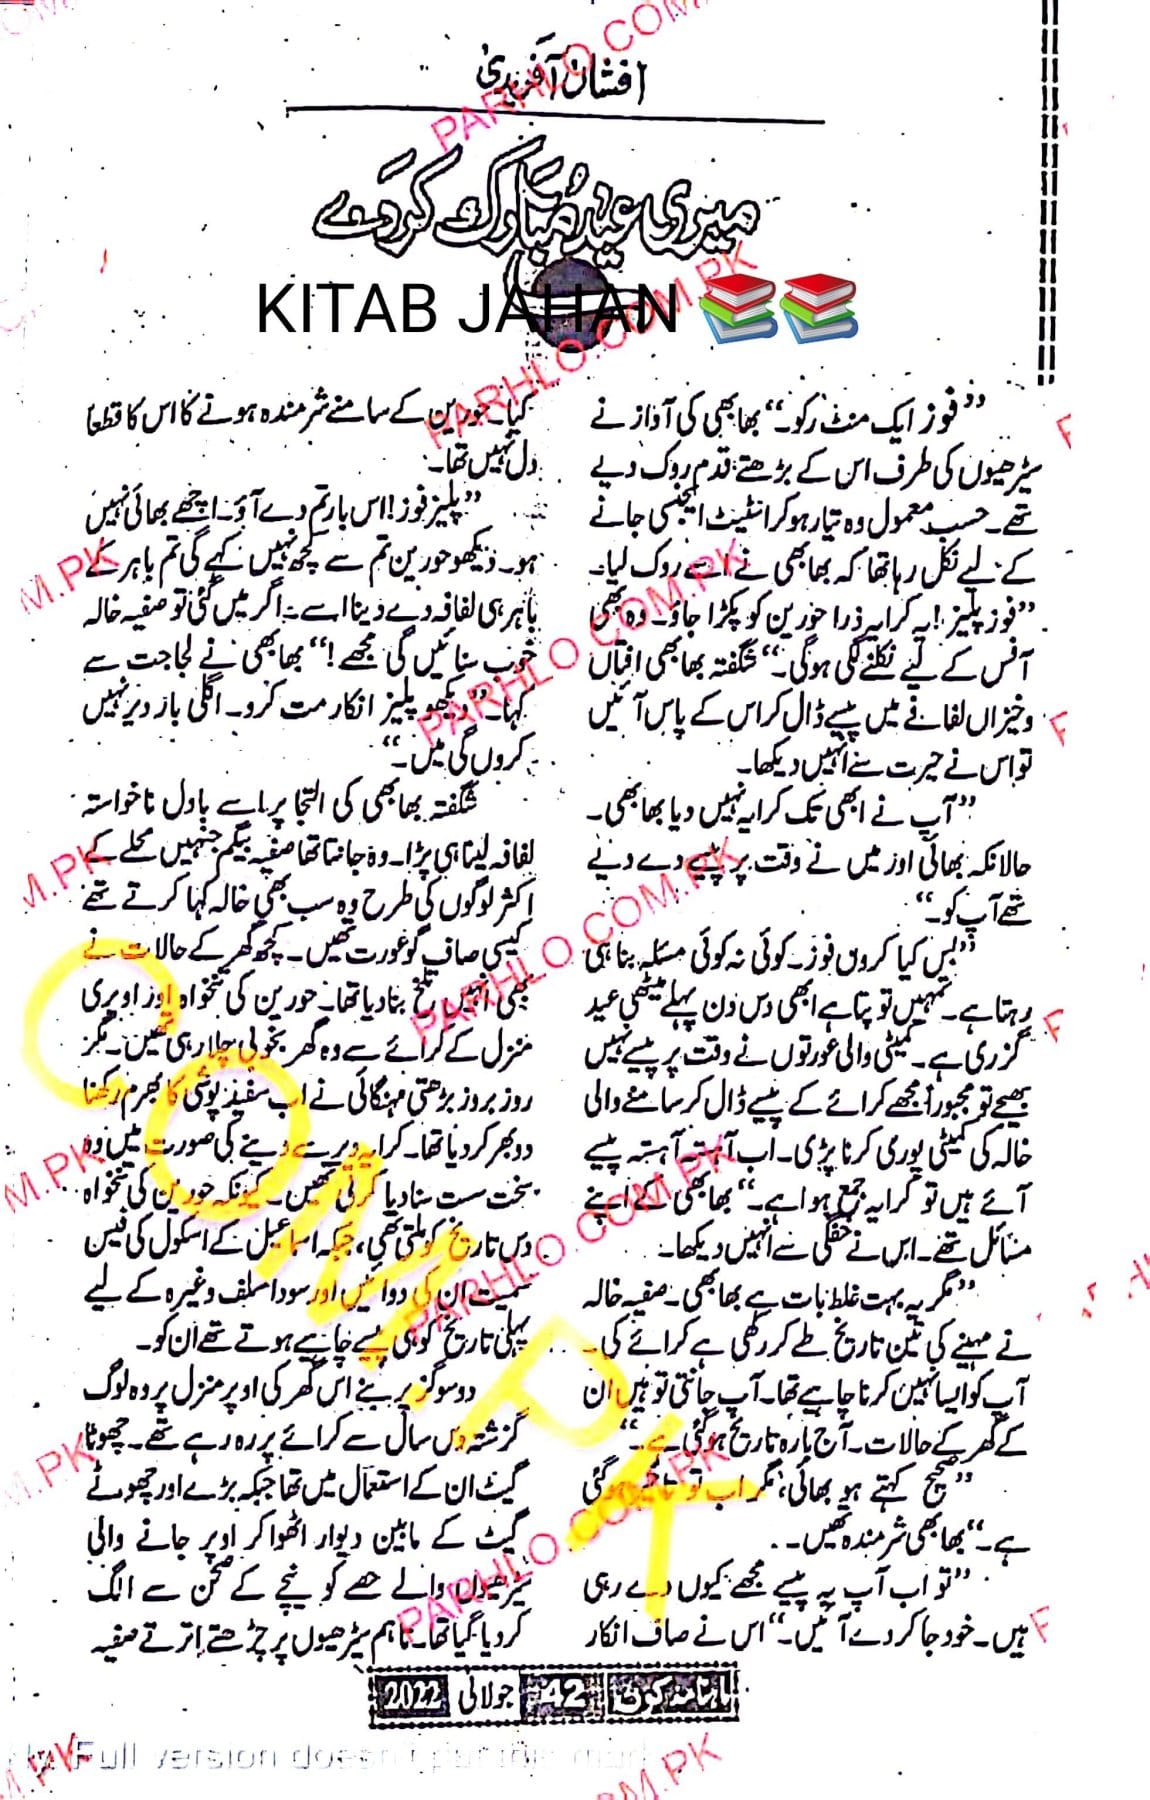 افشاں آفریدی
میری عید مبارک کردے
KITAB JAHAN
”فوز ایک منٹ رکو۔“ بھابھی کی آواز نے
سیڑھیوں کی طرف اس کے بڑھتے قدم روک دیے
تھے۔ حسب معمول وہ تیار ہو کر اسٹیٹ ایجنسی جانے
کے لیے نکل رہا تھا کہ بھابھی نے اسے روک لیا۔
”فوز پلیز! یہ کرایہ ذرا حورین کو پکڑا جاؤ۔ وہ بھی
آفس کے لیے نکلنے لگی ہوگی۔“ شگفتہ بھابھی افتاں
و خیزاں لفافے میں پیسے ڈال کر اس کے پاس آئیں
تو اس نے حیرت سے انہیں دیکھا۔
”آپ نے ابھی تک کرایہ نہیں دیا بھابھی۔
حالانکہ بھائی اور میں نے وقت پر پیسے دے دیے
تھے آپ کو۔“
”بس کیا کروں فوز۔ کوئی نہ کوئی مسئلہ بنا ہی
رہتا ہے۔ تمہیں تو پتا ہے ابھی دس دن پہلے میٹھی عید
گزری ہے۔ کمیٹی والی عورتوں نے وقت پر پیسے نہیں
بھیجے تو مجبوراً مجھے کرائے کے پیسے ڈال کر سامنے والی
خالہ کی کمیٹی پوری کرنا پڑی۔ اب آہستہ آہستہ پیسے
آئے ہیں تو کرایہ جمع ہوا ہے۔“ بھابھی کے اپنے
مسائل تھے۔ اس نے خفگی سے انہیں دیکھا۔
”مگر یہ بہت غلط بات ہے بھابھی۔ صفیہ خالہ
نے مہینے کی تین تاریخ طے کر رکھی ہے کرائے کی۔
آپ کو ایسا نہیں کرنا چاہیے تھا۔ آپ جانتی تو ہیں ان
کے گھر کے حالات۔ آج بارہ تاریخ ہوگئی ہے۔“
”صحیح کہتے ہو بھائی، مگر اب تو تاخیر ہوگئی
ہے۔“ بھابھی شرمندہ تھیں۔
”تو اب آپ یہ پیسے مجھے کیوں دے رہی
ہیں۔ خود جا کر دے آئیں۔“ اس نے صاف انکار
کیا۔ حورین کے سامنے شرمندہ ہونے کا اس کا قطعاً
دل نہیں تھا۔
”پلیز فوز! اس بار تم دے آؤ۔ اچھے بھائی نہیں
ہو۔ دیکھو حورین تم سے کچھ نہیں کہے گی تم باہر کے
باہر ہی لفافہ دے دینا اسے۔ اگر میں گئی تو صفیہ خالہ
خوب سنائیں گی مجھے!“ بھابھی نے لجاجت سے
کہا۔ ”دیکھو پلیز انکار مت کرو۔ اگلی بار دیر نہیں
کروں گی میں۔“
شگفتہ بھابھی کی التجا پر اسے بادل ناخواستہ
لفافہ لینا ہی پڑا۔ وہ جانتا تھا صفیہ بیگم جنہیں محلے کے
اکثر لوگوں کی طرح وہ سب بھی خالہ کہا کرتے تھے
کیسی صاف گو عورت تھیں۔ کچھ گھر کے حالات نے
بھی انہیں تلخ بنا دیا تھا۔ حورین کی تنخواہ اور اوپری
منزل کے کرائے سے وہ گھر بخوبی چلا رہی تھیں۔ مگر
روز بروز بڑھتی مہنگائی نے اب سفید پوشی کا بھرم رکھنا
دوبھر کر دیا تھا۔ کرایہ دیر سے دینے کی صورت میں وہ
سخت سست سنا دیا کرتی تھیں۔ کیونکہ حورین کی تنخواہ
دس تاریخ کو ملتی تھی، جبکہ اسماعیل کے اسکول کی فیس
سمیت ان کی دوائیں اور سودا سلف وغیرہ کے لیے
پہلی تاریخ کو ہی پیسے چاہیے ہوتے تھے ان کو۔
دو سو گز پر بنے اس گھر کی اوپر منزل پر وہ لوگ
گزشتہ دس سال سے کرائے پر رہ رہے تھے۔ چھوٹا
گیٹ ان کے استعمال میں تھا جبکہ بڑے اور چھوٹے
گیٹ کے مابین دیوار اٹھوا کر اوپر جانے والی
سیڑھیوں والے حصے کو نیچے کے صحن سے الگ
کر دیا گیا تھا۔ تاہم سیڑھیوں پر چڑھتے اترتے صفیہ
ماہنامہ کرن 42 جولائی 2022
PARHLO.COM.PK
COM.PK